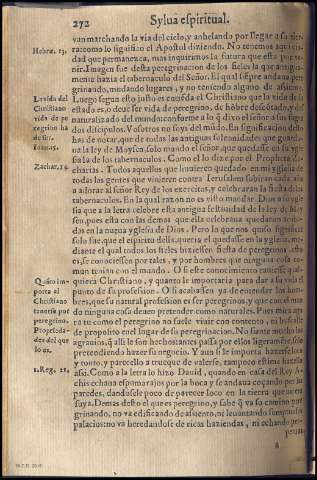 272 Sylua espiritual.
van marchando la via del cielo, y anhelando por llegar a su tierra
Hebræ. 13.
como lo significo el Apostol diziendo. No tenemos aqui ciudad
que permanezca, mas inquirimos la futura que esta por venir.
Imagen fue desta peregrinacion de los fieles la que antiguamente
hazia el tabernaculo del Señor. El qual siempre andaua peregrinando,
mudando lugares, y no teniendo alguno de asiento.
La vida del
Christiano
vida de peregrino
ha
de ser.
Ioan. 15.
Luego segun esto justo es que
estado es, o deue ser vida de peregrino, de hōbre desterrado, y desnaturalizado
del mundo: conforme a lo q̄ dixo el señor a sus sagrados
discipulos. Vosotros no soys del mūdo. En significacion desto
has de notar, que de todas las antiguas solennidades que guardaua
la ley de Moysen, solo mando el señor, que quedasse en su yglesia
la de los tabernaculos. Como el lo dize por el Propheta Zacharias.
Zachar. 14.
Todos aquellos que huuieren quedado en mi yglesia de
todas las gentes que vinieren contra Ierusalem subiran cada año
a adorar al señor Rey de los exercitos, y celebraran la fiesta de los
tabernaculos. En la qual razon es visto mandar Dios a su yglesia
que a la letra celebre esta antigua festiuidad de la ley de Moysen,
pues esta con las demas que ella celebraua quedaron
en la nueua yglesia de Dios. Pero lo que nos quiso significar
solo fue, que el espiritu della, queria el quedasse en la yglesia, mediante
el qual todos los fieles hiziessen fiesta de peregrinos, esto
es, se conociessen por tales, y por hombres que ninguna cosa comun
tenian con el mundo. O si este conocimiento tuuiesse qualquiera
Christiano, y quanto le importaria para dar a su vida el
Quāto importa
el
Christiano
tenerse por
peregrino.
Propriedades
del que
lo es.
punto de su profession. O si acabassen ya de entender los hombres,
que su natural profession es ser peregrinos, y que con el mundo
ninguna cosa deuen pretender como naturales. Pues mira agora
tu como el peregrino no suele viuir con contento, ni huelga
de proposito en el lugar de su peregrinacion. No siente mucho los
agrauios, q̄ alli le son hechos: antes passa por ellos ligeramēte, solo
pretendiendo hazer su negocio. Y aun si le importa hazerse loco
y tonto, y parecello a trueque de valerse, tampoco estima hazerlo
1. Reg. 21.
assi. Como a la letra lo hizo Dauid, quando en casa del Rey Achis
echaua espumarajos por la boca y se andaua coçando por las
paredes, dandosele poco de parecer loco en la tierra que no era
suya. Demas desto el que es peregrino, y sabe q̄ va su camino peregrinando,
no va edificando de assiento, ni leuantando sumptuosos
palacios: no va heredandose de ricas haziendas, ni echando